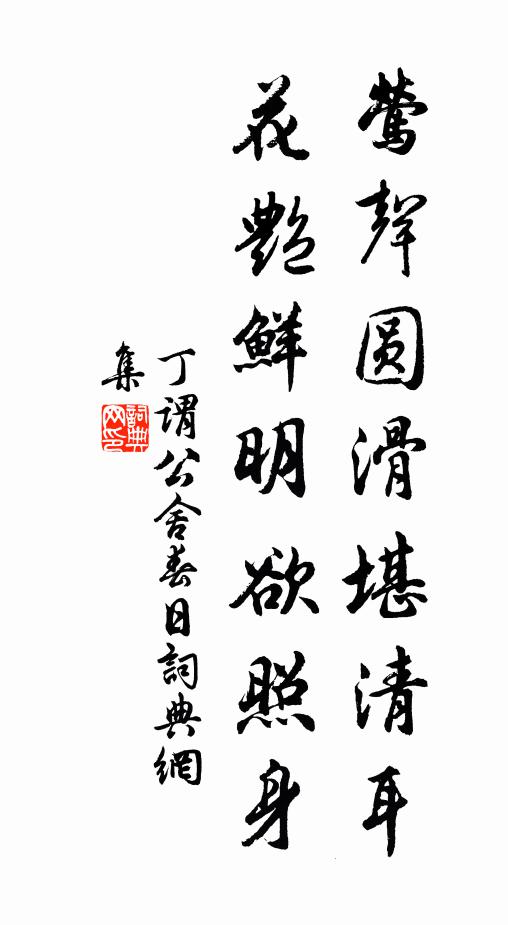 鶯聲圆滑堪清耳
花艷鮮明欲照身
丁謂公舍春日詞典網
集
詞典
网印